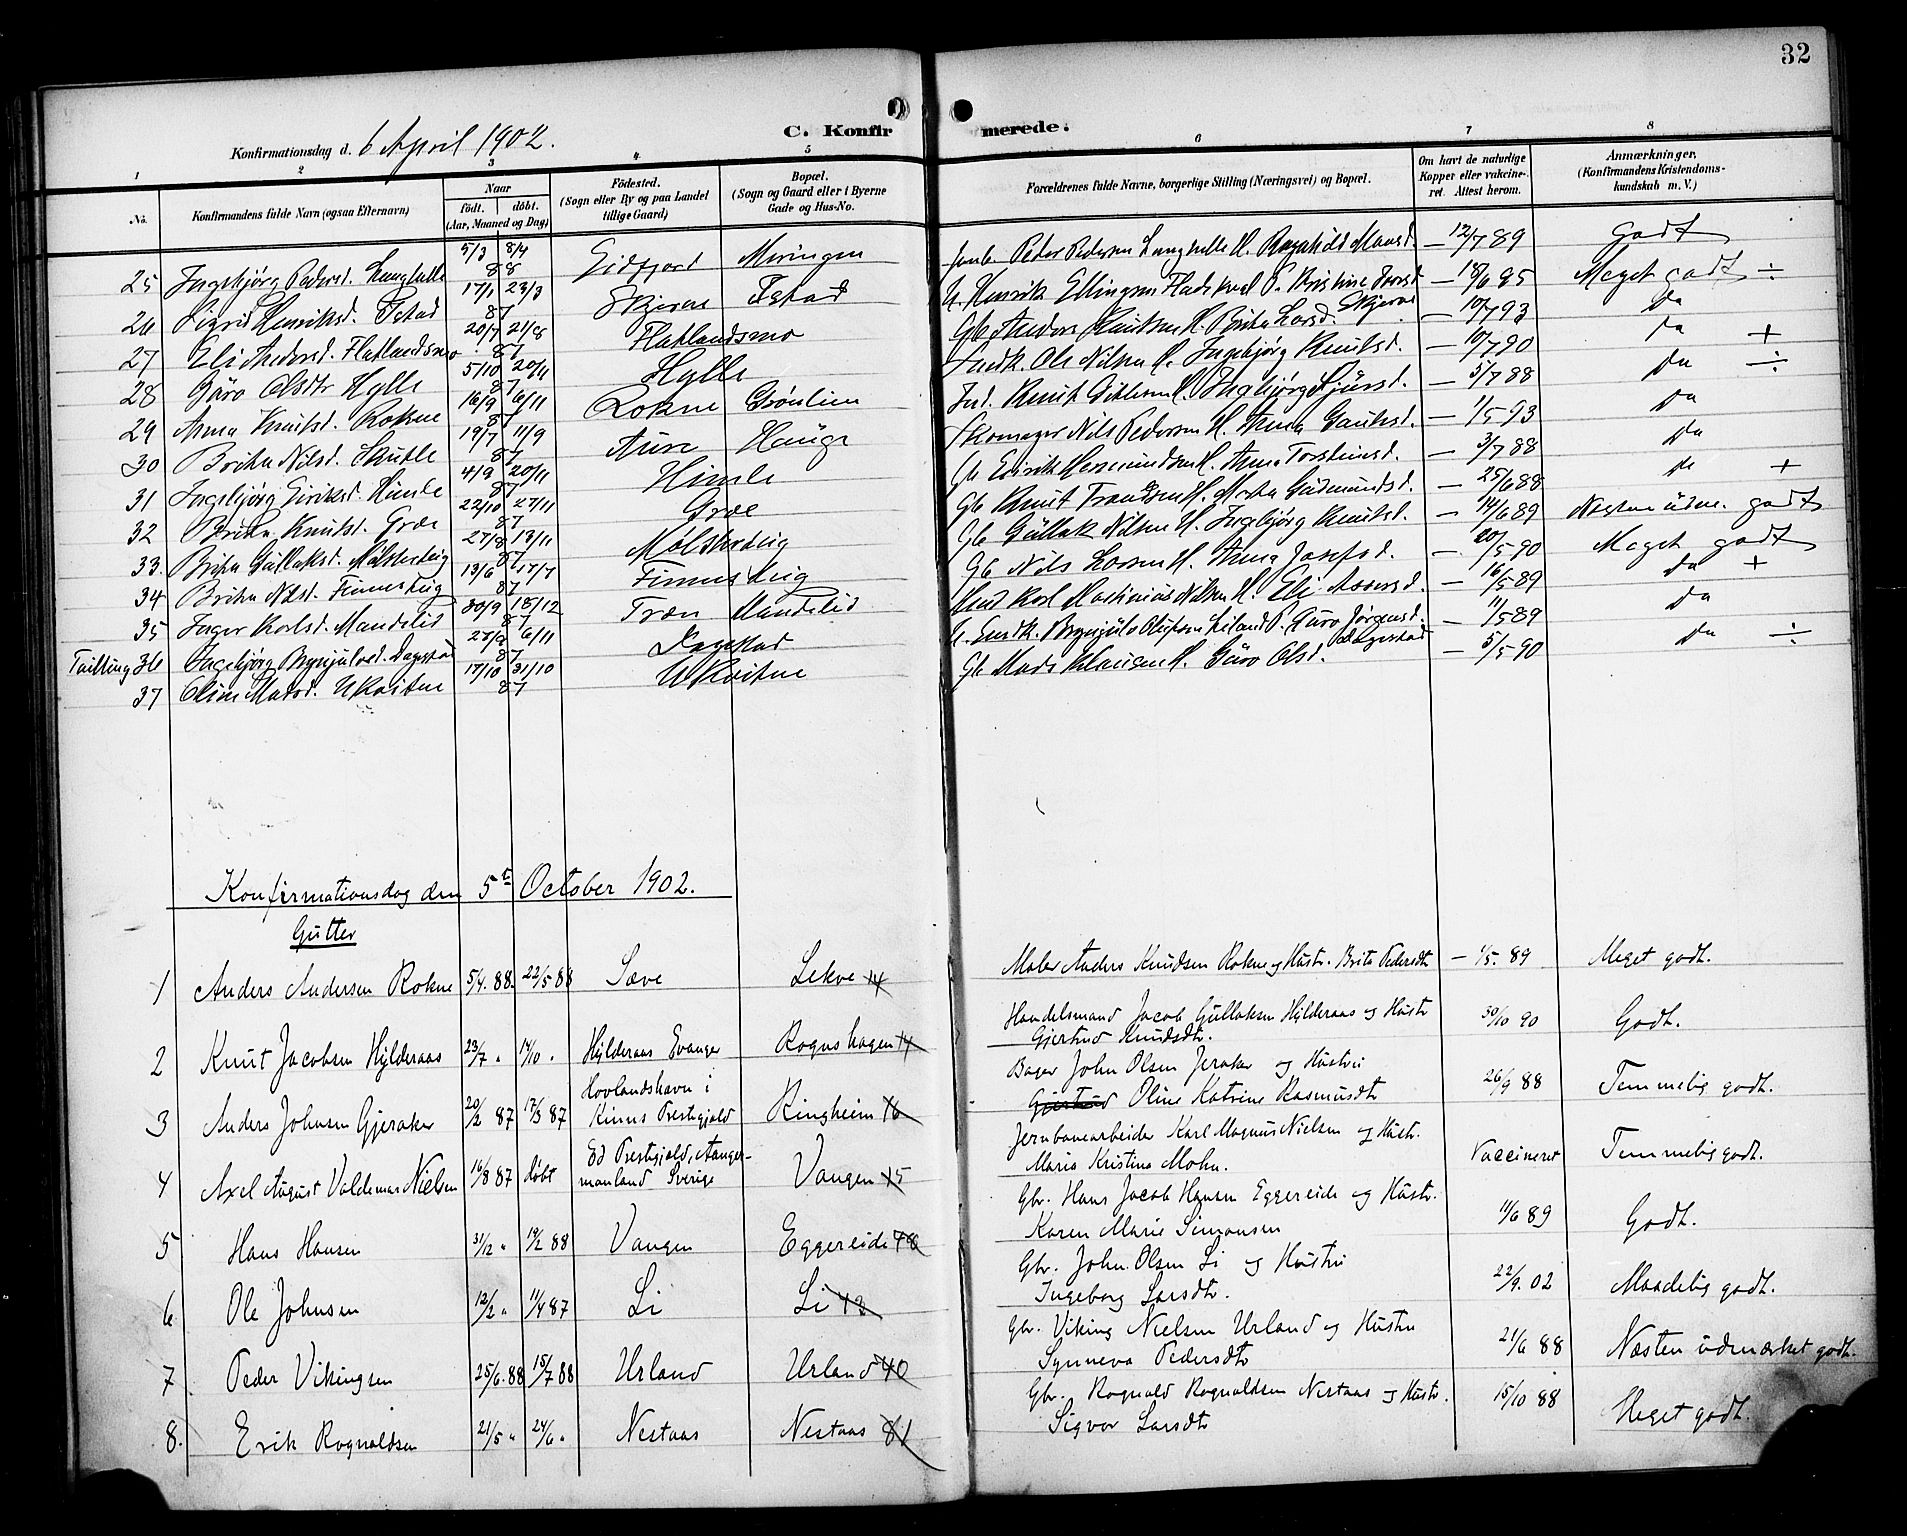 32
C. Konfirmerede.
Konfirmationsdag d. 6 April 1902.
1 2 3 4 5 6 7 8
No. Konfirmandens fulde Navn (ogsaa Efternavn) Naar födt. döbt. (Aar, Maaned og Dag) Födested. (Sogn eller By og paa Landet tillige Gaard) Bopæl. (Sogn og Gaard eller i Byerne Gade og Hus-No. Forældrenes fulde Navne, borgerlige Stilling (Næringsvei) og Bopæl. Om havt de naturlige Kopper eller vaccineret. Attest herom. Anmærkninger. (Konfirmandens Kristendomskundskab m. V.)
25 Ingebjörg Pedersd. 5/3 8/4 88 Eidfjord Miringen Peder Pedersen H. Ragnhild Mausd. — 12/7 89 godt
26 Sigrid Henriksd. Istad 17/1 23/3 87 Skjerve Istad U. Henrik Ellingsen P. Kristine — 18/6 95 Meget godt ÷
27 Eli Andersd. Flatlandsmo 20/7 21/8 87 Flatlandsmo Gb Anders Knutsen H. Britha Larsd. Skjerve — 10/7 93 Do
28 Güro Olsdtr Hylle 5/10 20/11 87 Hylle Ole Nilsen H. Ingebjörg Knutsd. — 10/7 90 Do +
29 Anna Knutsd. Rokne 16/9 6/11 87 Rokne Grönlien Knut H. Ingebjörg — 5/7 88 Do ÷
30 Britha Nilsd. Skutle 19/7 11/9 87 Aure Hauge Skomager Nils Pedersen H. Anna Gauksd. — 1/5 93 Do
31 Ingebjörg Eiriksd. Himle 4/9 20/11 87 Himle Gb Eirik Hermundsen H. Anna Torsteinsd. — 3/7 88 Do
32 Britha Knutsd. Gröe 22/10 27/11 87 Gröe Gb Knut H. Martha Gudmundsd. — 25/6 88 Do +
33. Britha Gullaksd. Mölsterteig 27/8 13/11 87 Mölsterteig Gb Gullak Nilsen H. Ingebjörg Knutsd. — 14/6 89 Næsten üdm. godt
34 Britha Nilsd. Finnesteig 13/6 17/7 87 Finnesteig Gb Nils Larsen H. Anna Josefsd. — 20/5 90 Meget godt
35 Inger Karlsd. Mandelid 30/9 18/12 87 Mandelid Karl Martinius Nilsen H. Eli — 16/5 89 Do +
Tvilling 36 Ingebjörg Brynjulvsd. Dagestad 6/11 87 Dagestad Brynjulv P. Guro Jörgensd. Dagestad — 11/5 89 Do
37 Oline Madsd. UKvitne 17/10 31/10 87 UKvitne Gb Mads Klausen H. Güro Olsd. — 5/5 90 Do ÷
Konfirmationsdag den 5te October 1902.
Gutter
1 Anders Andersen Rokne 5/4. 88. 22/5 88 Sæve Lekve 14 Maler Anders Knudsen Rokne og Hustr. Brita Pedersdtr — 1/5. 89 Meget godt.
2 Knut Jacobsen Hylderaas 23/7 " 14/10 " Hylderaas Evanger Rognshagen 14 Handelsmand Jacob Gullaksen Hylderaas og Hustr Gjertrud Knudsdtr. 30/10 90 Godt.
3 Anders Johnsen Gjeraker 20/2 87 17/3 87 Hovlandshavn i Kinns Prestegjeld Ringheim 16 Bager John Olsen Jeraker og Hustru Gjertrud Oline Katrine Rasmusdtr 26/9 88 Temmelig godt.
4 Axel August Valdemar Nielsen 16/8 87 döbt Ed Prestegjeld, Aangermanland Sverige Vangen 15 Jernbanearbeider Karl Magnus Nielsen og Hustr. Maria Kristina Mohn. Vaccineret Temmelig godt.
5 Hans Hansen 31/12 " 19/2 88 Vangen Eggereide 48 Gbr. Hans Jacob Hansen Eggereide og Hustr. Karen Marie Simonsen 11/6 89 Godt.
6 Ole Johnsen 12/2 " 11/4 87 Li Li 42 Gbr. John Olsen Li og Hustru Ingeborg Larsdtr. 22/9. 02 Maadelig godt.
7 Peder Vikingsen 25/6. 88 15/7 88 Urland Urland 40 Gbr. Viking Nielsen Urland og Hustru Synneva Pedersdtr 21/6 88 Næsten udmærket godt.
8. Erik Rognaldsen 21/5 " 24/6 " Nestaas Nestaas 81 Gbr. Rognald Rognaldsen Nestaas og Hustr. Sigvor Larsdtr 15/10 88 Meget godt.